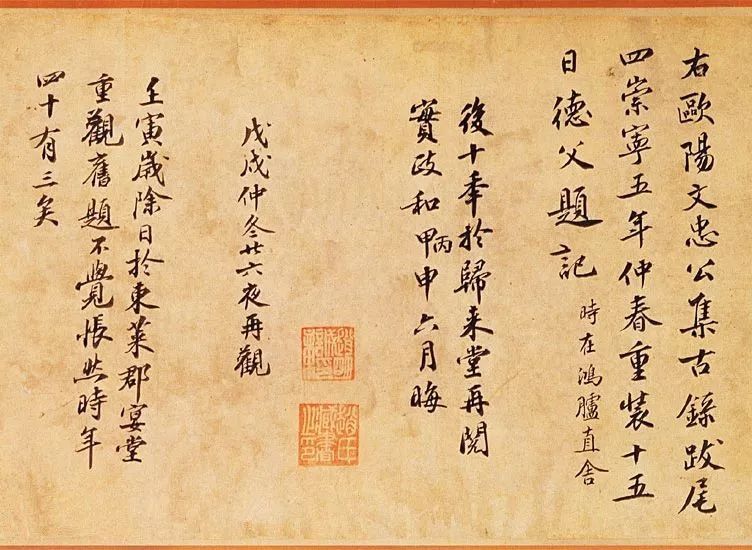 右歐陽文忠公集古錄跋尾
四崇寧五年仲春重装十五
日德父題記 時在鴻臚直舍
後十秊於歸来堂再閱
實政和甲丙申六月晦
戊戌仲冬廿六夜再觀
趙氏藏書之印
壬寅歲除日於東萊郡宴堂
重觀舊題不覺悵然時年
四十有三矣